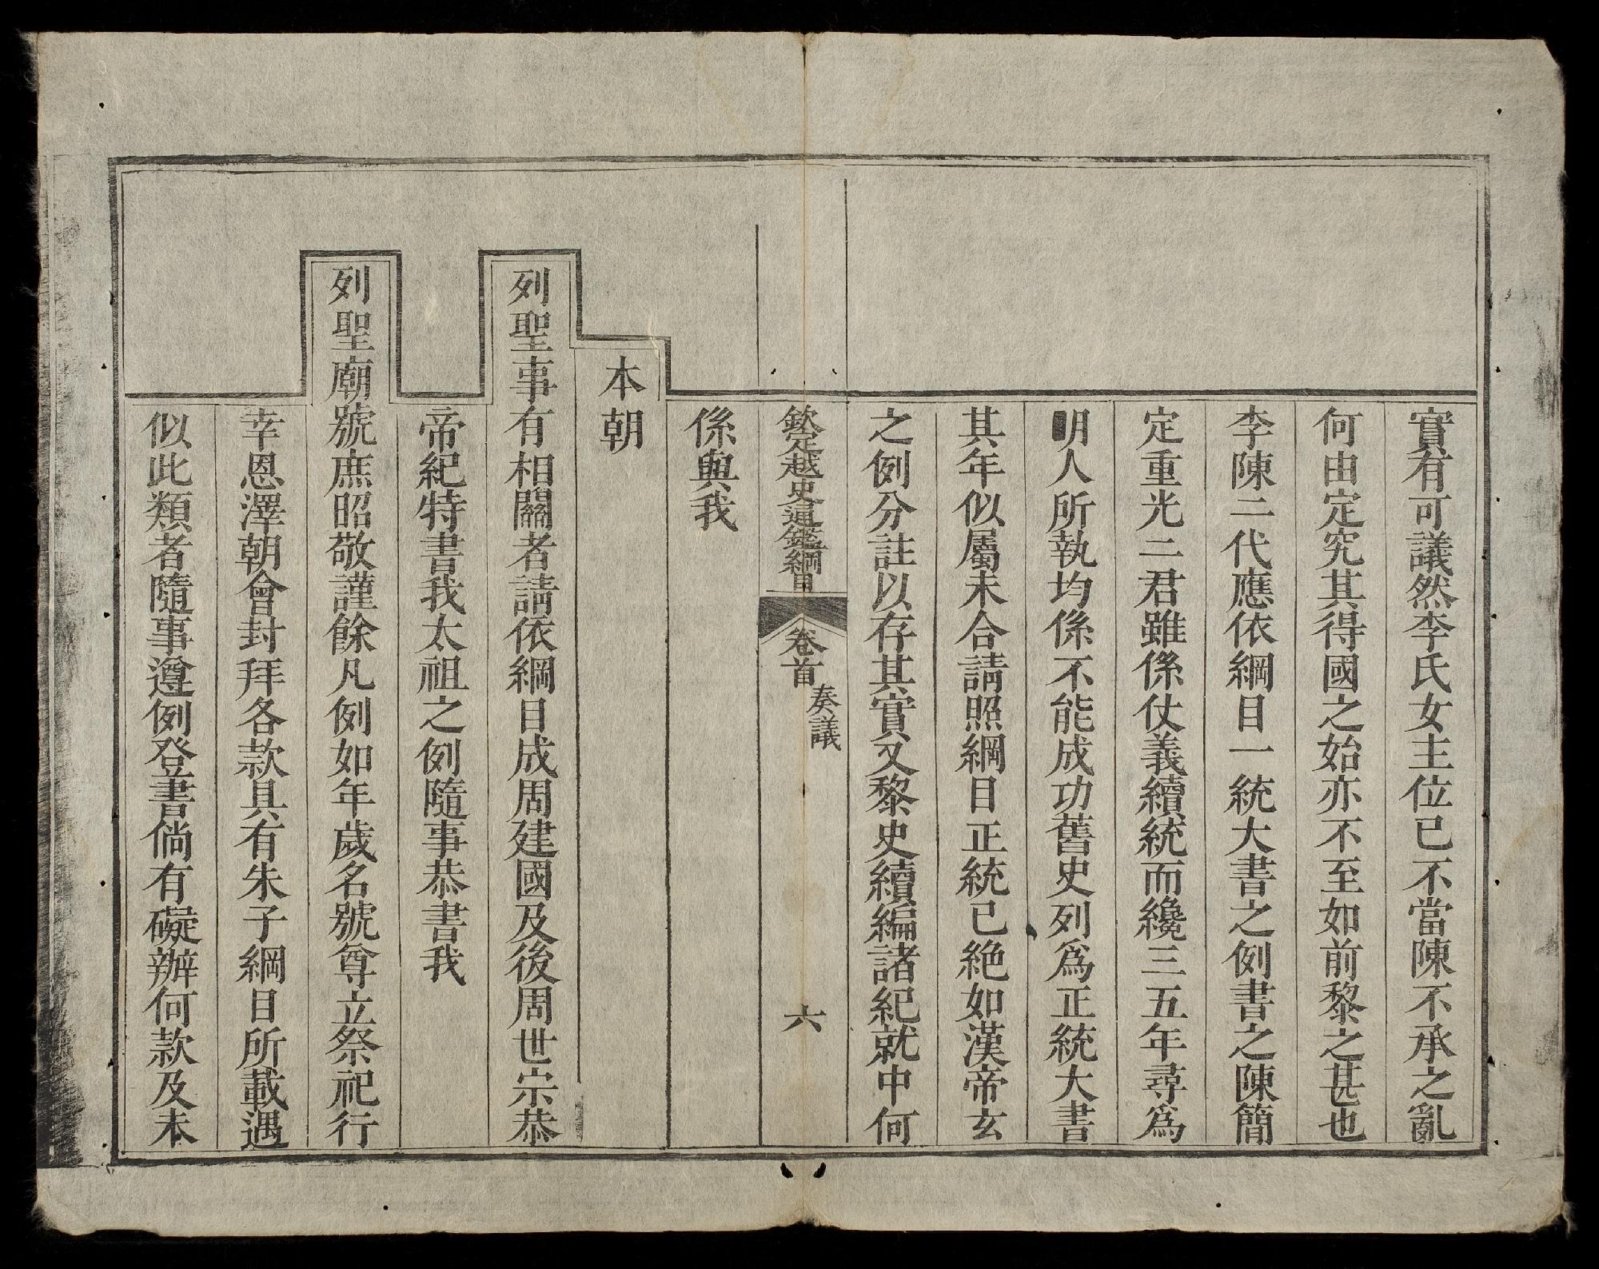 實有可議然李氏女主位已不當陳不承之亂
何由定究其得國之始亦不至如前黎之甚也
李陳二代應依綱目一統大書之例書之陳簡
定重光二君雖係仗義續統而纔三五年尋為
明人所執均係不能成功舊史列為正統大書
其年似屬未合請照綱目正統已絶如漢帝玄
之例分註以存其實又黎史續編諸紀就中何
欽定越史通鑑綱目 卷首 奏議 六
係與我
本朝
列聖事有相關者請依綱目成周建國及後周世宗恭
帝紀特書我太祖之例隨事恭書我
列聖廟號庶昭敬謹餘凡例如年歲名號尊立祭祀行
幸恩澤朝會封拜各款具有朱子綱目所載遇
似此類者隨事遵例登書倘有礙辦何款及未